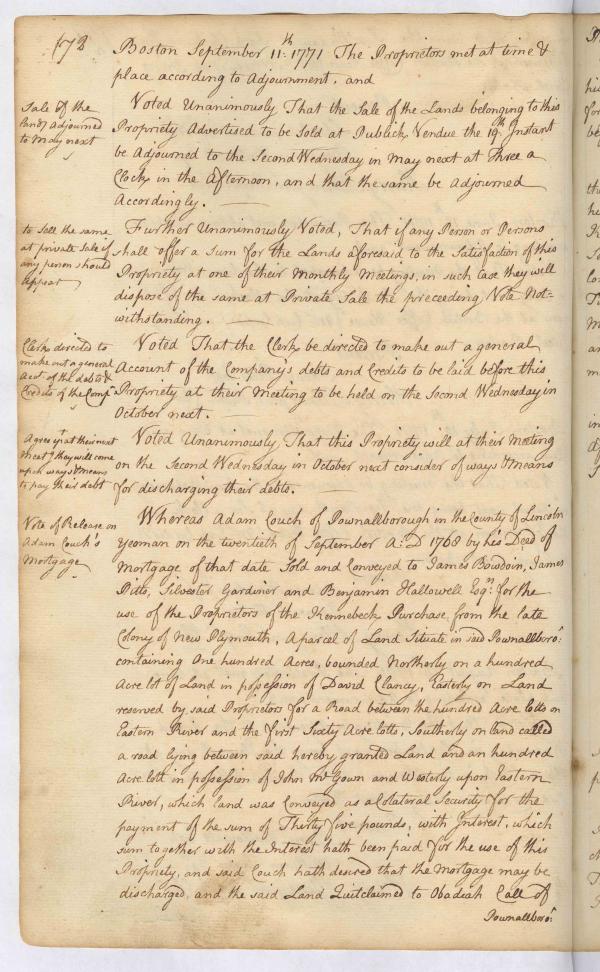 172
Boston September 11th. 1771 The Proprietors met at time &
place according to Adjournment. and
Sale of the
Lands adjourned
to May next
Voted Unanimously That the Sale of the Lands belonging to this
Propriety Advertised to be Sold at Publick Vendue the 19th. Instant
be Adjourned to the Second Wednesday in May next at Three a
Clock in the afternoon, and that the same be Adjourned
Accordingly.
to Sell the same
at private Sale if
any person should
appear
Further Unanimously Voted, That if any Person or Persons
shall offer a Sum for the Lands aforesaid to the Satisfaction of this
Propriety at one of their Monthly Meetings, in such Case they will
dispose of the same at Private Sale the preceeding Vote Not-
withstanding.
Clerk directed to
make out a general
Acct. of the debts &
Credits of the Compy
Voted That the Clerk be directed to make out a general
Account of the Company's debts and Credits to be laid before this
Propriety at their Meeting to be held on the Second Wednesday in
October next.
Agreed yt at their next
Meetg they will come
upon ways & means
to pay their debt
Voted Unanimously That this Propriety will at their Meeting
on the Second Wednesday in October next consider of ways & means
for discharging their debts.
Vote of Release on
Adam Couch's
Mortgage
Whereas Adam Couch of Pownallborough in the County of Lincoln
Yeoman on the twentieth of September A:D 1768 by his Deed of
Mortgage of that date Sold and Conveyed to James Bowdoin, James
Pitts, Silvester Gardiner and Benjamin Hallowell Esqrs. for the
use of the Proprietors of the Kennebeck Purchase from the late
Colony of New Plymouth, a parcel of Land Situate in said Pownallboro:
containing One hundred Acres, bounded Northerly on a hundred
Acre lot of Land in possession of David Clancy, Easterly on Land
reserved by said Proprietors for a Road between the hundred Acre lotts on
Eastern River and the first Sixty Acre lotts, Southerly on land called
a road lying between said hereby granted Land and an hundred
Acre lott in possession of John McGown and Westerly upon Eastern
River, which land was Conveyed as a Colateral Security for the
payment of the sum of Thirty five pounds, with Interest, which
sum together with the Interest hath been paid for the use of this
Propriety, and said Couch hath desired that the Mortgage may be
discharged, and the said Land Quitclaimed to Obadiah Call of
Pownallboro: